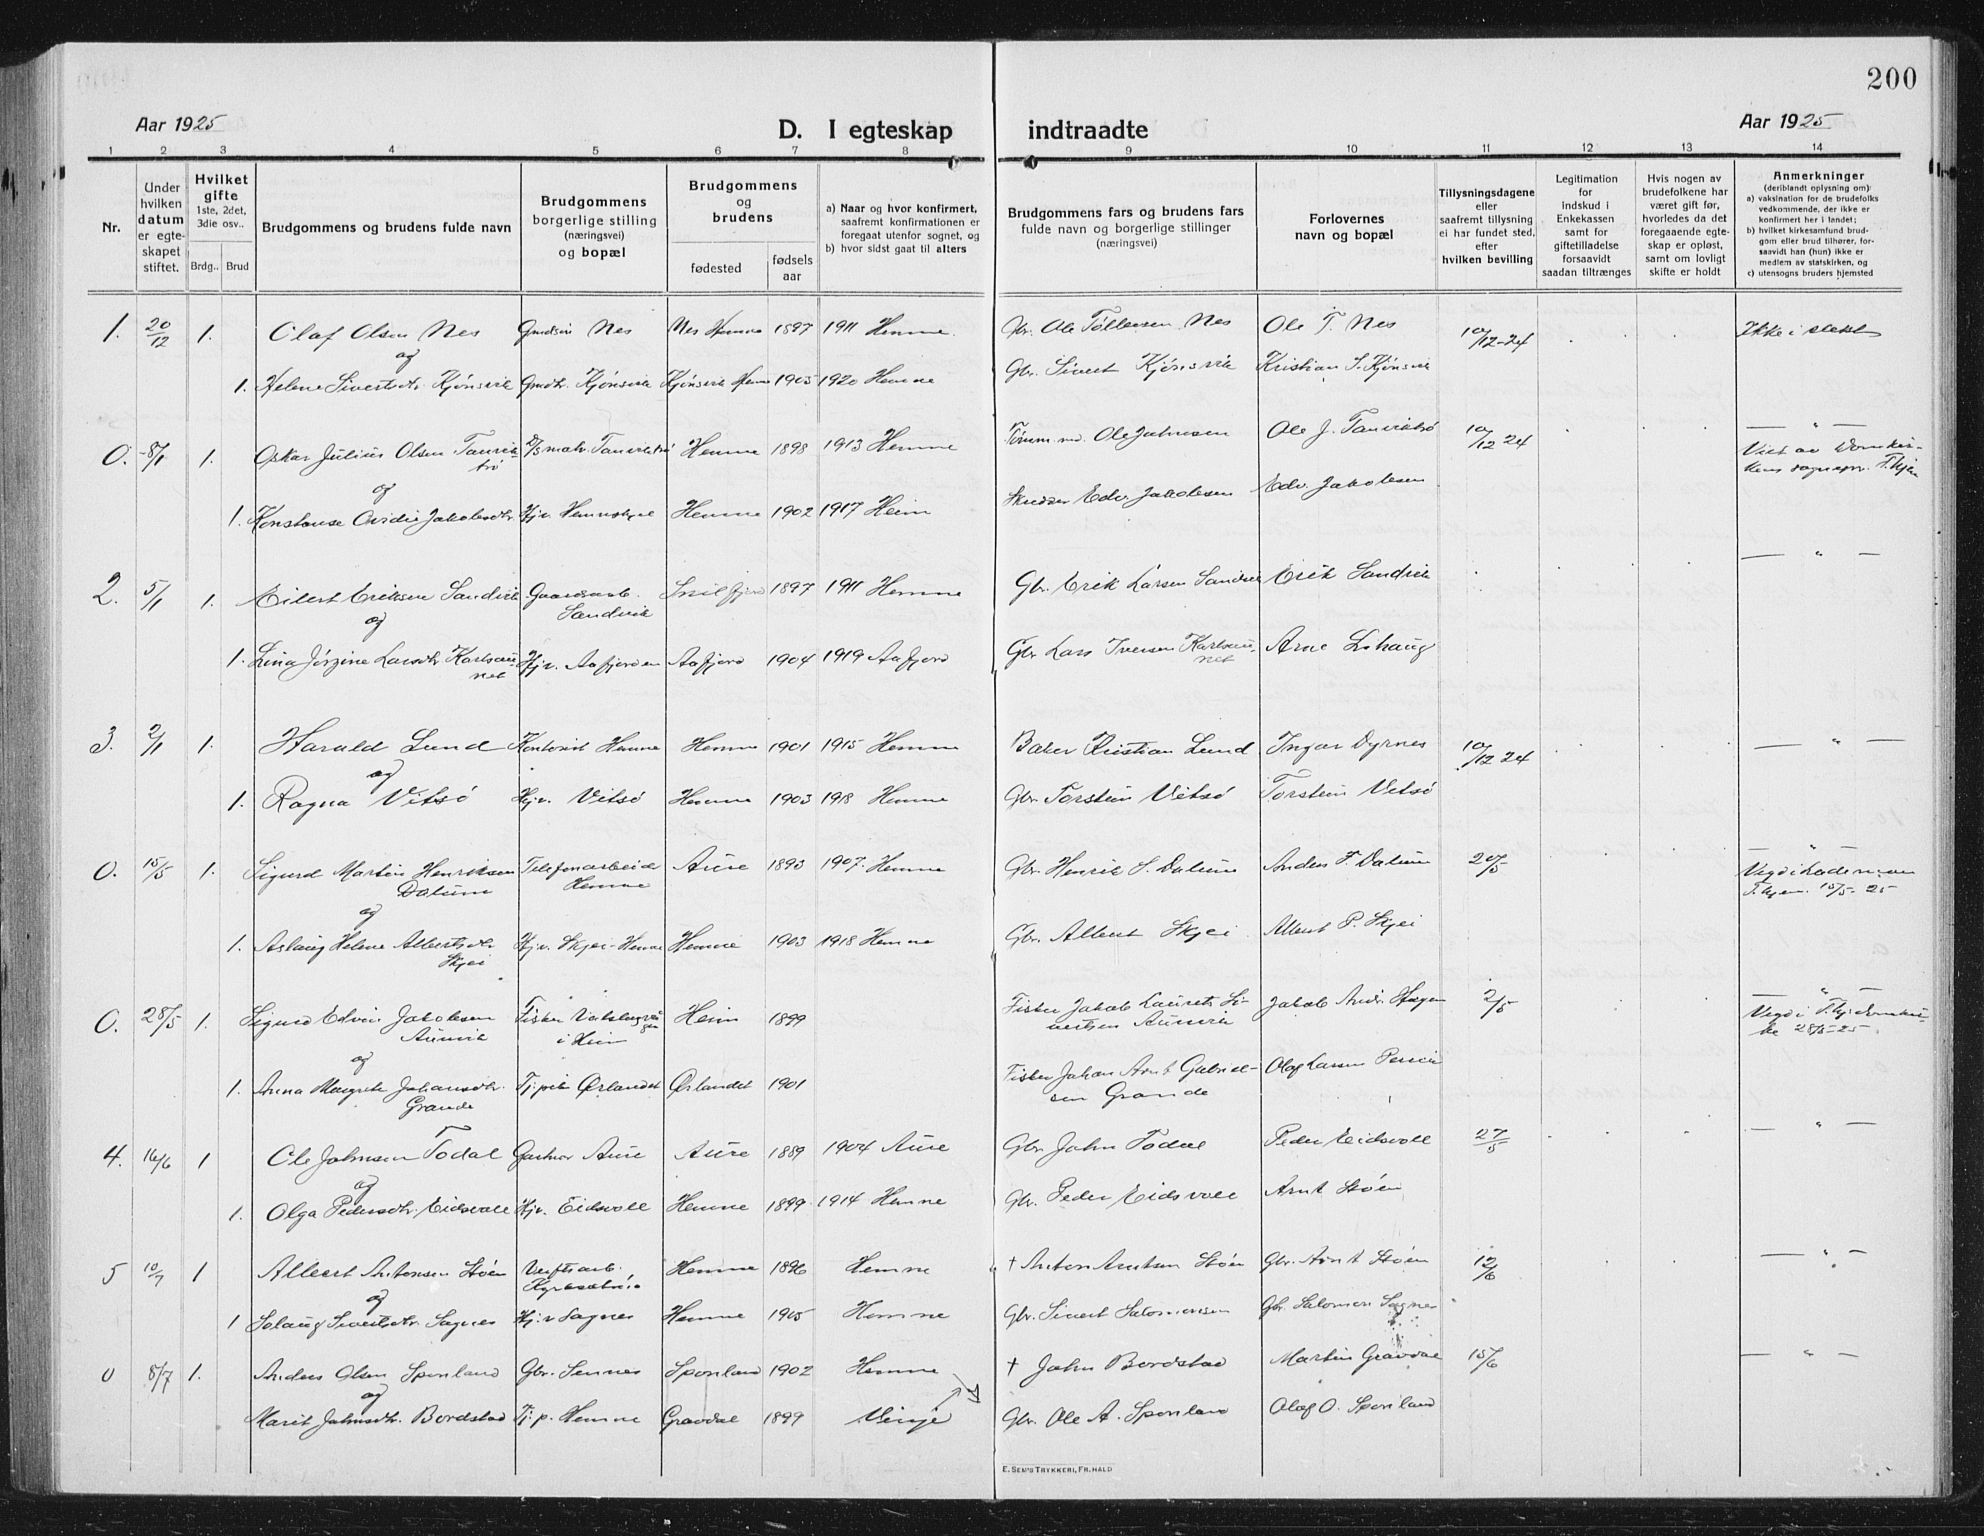 200
Aar 1925
D. I egteskap indtraadte
Aar 1925
1 2 3 4 5 6 7 8 9 10 11 12 13 14
Nr.
Under hvilken datum er egteskapet stiftet.
Hvilket gifte 1ste, 2det, 3die osv..
Brdg.. Brud
Brudgommens og brudens fulde navn
Brudgommens borgerlige stilling (næringsvei) og bopæl
Brudgommens og brudens
fødested
fødsels aar
a) Naar og hvor konfirmert, saafremt konfirmationen er foregaat utenfor sognet, og
b) hvor sidst gaat til alters
Brudgommens fars og brudens fars fulde navn og borgerlige stillinger (næringsvei)
Forlovernes navn og bopæl
Tillysningsdagene eller saafremt tillysning ei har fundet sted, efter hvilken bevilling
Legitimation for indskud i Enkekassen samt for giftetilladelse forsaavidt saadan tiltrænges
Hvis nogen av brudefolkene har været gift før, hvorledes da det foregaaende egteskap er opløst, samt om lovligt skifte er holdt
Anmerkninger (deriblandt oplysning om):
a) vaksination for de brudefolks vedkommende, der ikke er konfirmert her i landet;
b) hvilket kirkesamfund brudgom eller brud tilhører, forsaavidt han (hun) ikke er medlem av statskirken, og
c) utensogns bruders hjemsted
1. 20/12 1. Olaf Olsen Nes Nes Nes Hemne 1897 1911 Hemne Gbr. Ole Tøllesen Nes Ole T. Nes 10/12-24 Ikke i slekt
og
1. Helene Sivertsdtr. Kjønsvik Gmdtr. Kjønsvik Kjønsvik Hemne 1905 1920 Hemne Gbr. Sivert Kjønsvik Kristian S. Kjønsvik
0. 8/1 1. Oskar Julius Olsen Tanvik- Hemne 1898 1913 Hemne Ole Johnsen Ole J. Tanviktrø 10/12 24 — " —
trø
og Viet av Domkir-
kens sognepr. T.hjem
1. Konstanse Ovidie Jakobsdtr. Hjv. Hemne 1902 1917 Heim Edv. Jakobsen Edv. Jakobsen
2. 5/1 1. Eilert Eriksen Sandvik Gaardsarb. Snilfjord 1897 1911 Hemne Gbr. Erik Larsen Sandvik Erik Sandvik — " —
og Sandvik
1. Lina Jørgine Larsdtr. Karlsau- Hjv. Aafjorden Aafjord 1904 1919 Aafjord Gbr. Lars Iversen Karlsau- Arne Lihaug
net net
3. 2/1 1. Harald Lund Kontorist Hemne Hemne 1901 1915 Hemne Baker Kristian Lund Ingar Dyrnes 10/12 24 — " —
og
1. Ragna Vitsø Hjv. Vitsø Hemne 1903 1918 Hemne Gbr. Torstein Vitsø Torstein Vitsø
0. 15/5 1. Sigurd Martin Henriksen Telefonarbeid Aure 1893 1907. Hemne Gbr. Henrik S. Dalum Anders F. Dalum 20/5 — " —
Dalum Hemne Vigd i Lademoen
og T.hjem. 15/5-25
1. Aslaug Helene Albertsdtr. Hjv. Skjei-Hemne Hemne 1903 1918 Hemne Gbr. Albert Skjei Albert P. Skjei
Skjei
0. 28/5 1. Sigurd Edvin Jakobsen Fisker Heim 1899 Fisker Jakob Laurits Si- Jakob Andr. Hagen 2/5 — " —
Aunvik i Heim vertsen Aunvik Vigd i T.hj. Domkir-
og ke 28/5-25
1. Anna Margrete Johansdtr. Tj.pike Ørlandet Ørlandet 1901 Fisker Johan Arnt Gabriel- Olaf Larsen
Grande sen Grande
4. 16/6 1 Ole Johnsen Todal Gartner Aure Aure 1889 1904 Aure Gbr. John Todal Peder Eidsvoll 27/5 — " —
og
1. Olga Pedersdtr. Eidsvoll Hjv. Eidsvoll Hemne 1899 1914 Hemne Gbr. Peder Eidsvoll Arnt Støen
5 10/7 1 Albert Antonsen Støen Verftsarb. Hemne 1896 Hemne † Anton Arntsen Støen Gbr. Arnt Støen 12/6 — " —
og Kyrksæterø.
1 Solaug Sivertsdtr. Sagnes Hj.v Sagnes Hemne 1905 Hemne Gbr. Sivert Salomonsen Gbr. Salomon Sagnes
0 8/7 1. Anders Olsen Sponland Gbr. Sennes Sponland 1902 Hemne † John Bordstad Martin Gravdal 15/6 — " —
og
Marit Johnsdtr. Bordstad Tj.p. Hemne Gravdal 1899 Vinje Gbr. Ole A. Sponland Olaf O. Sponland
E. SEM'S TRYKKERI, FR.HALD